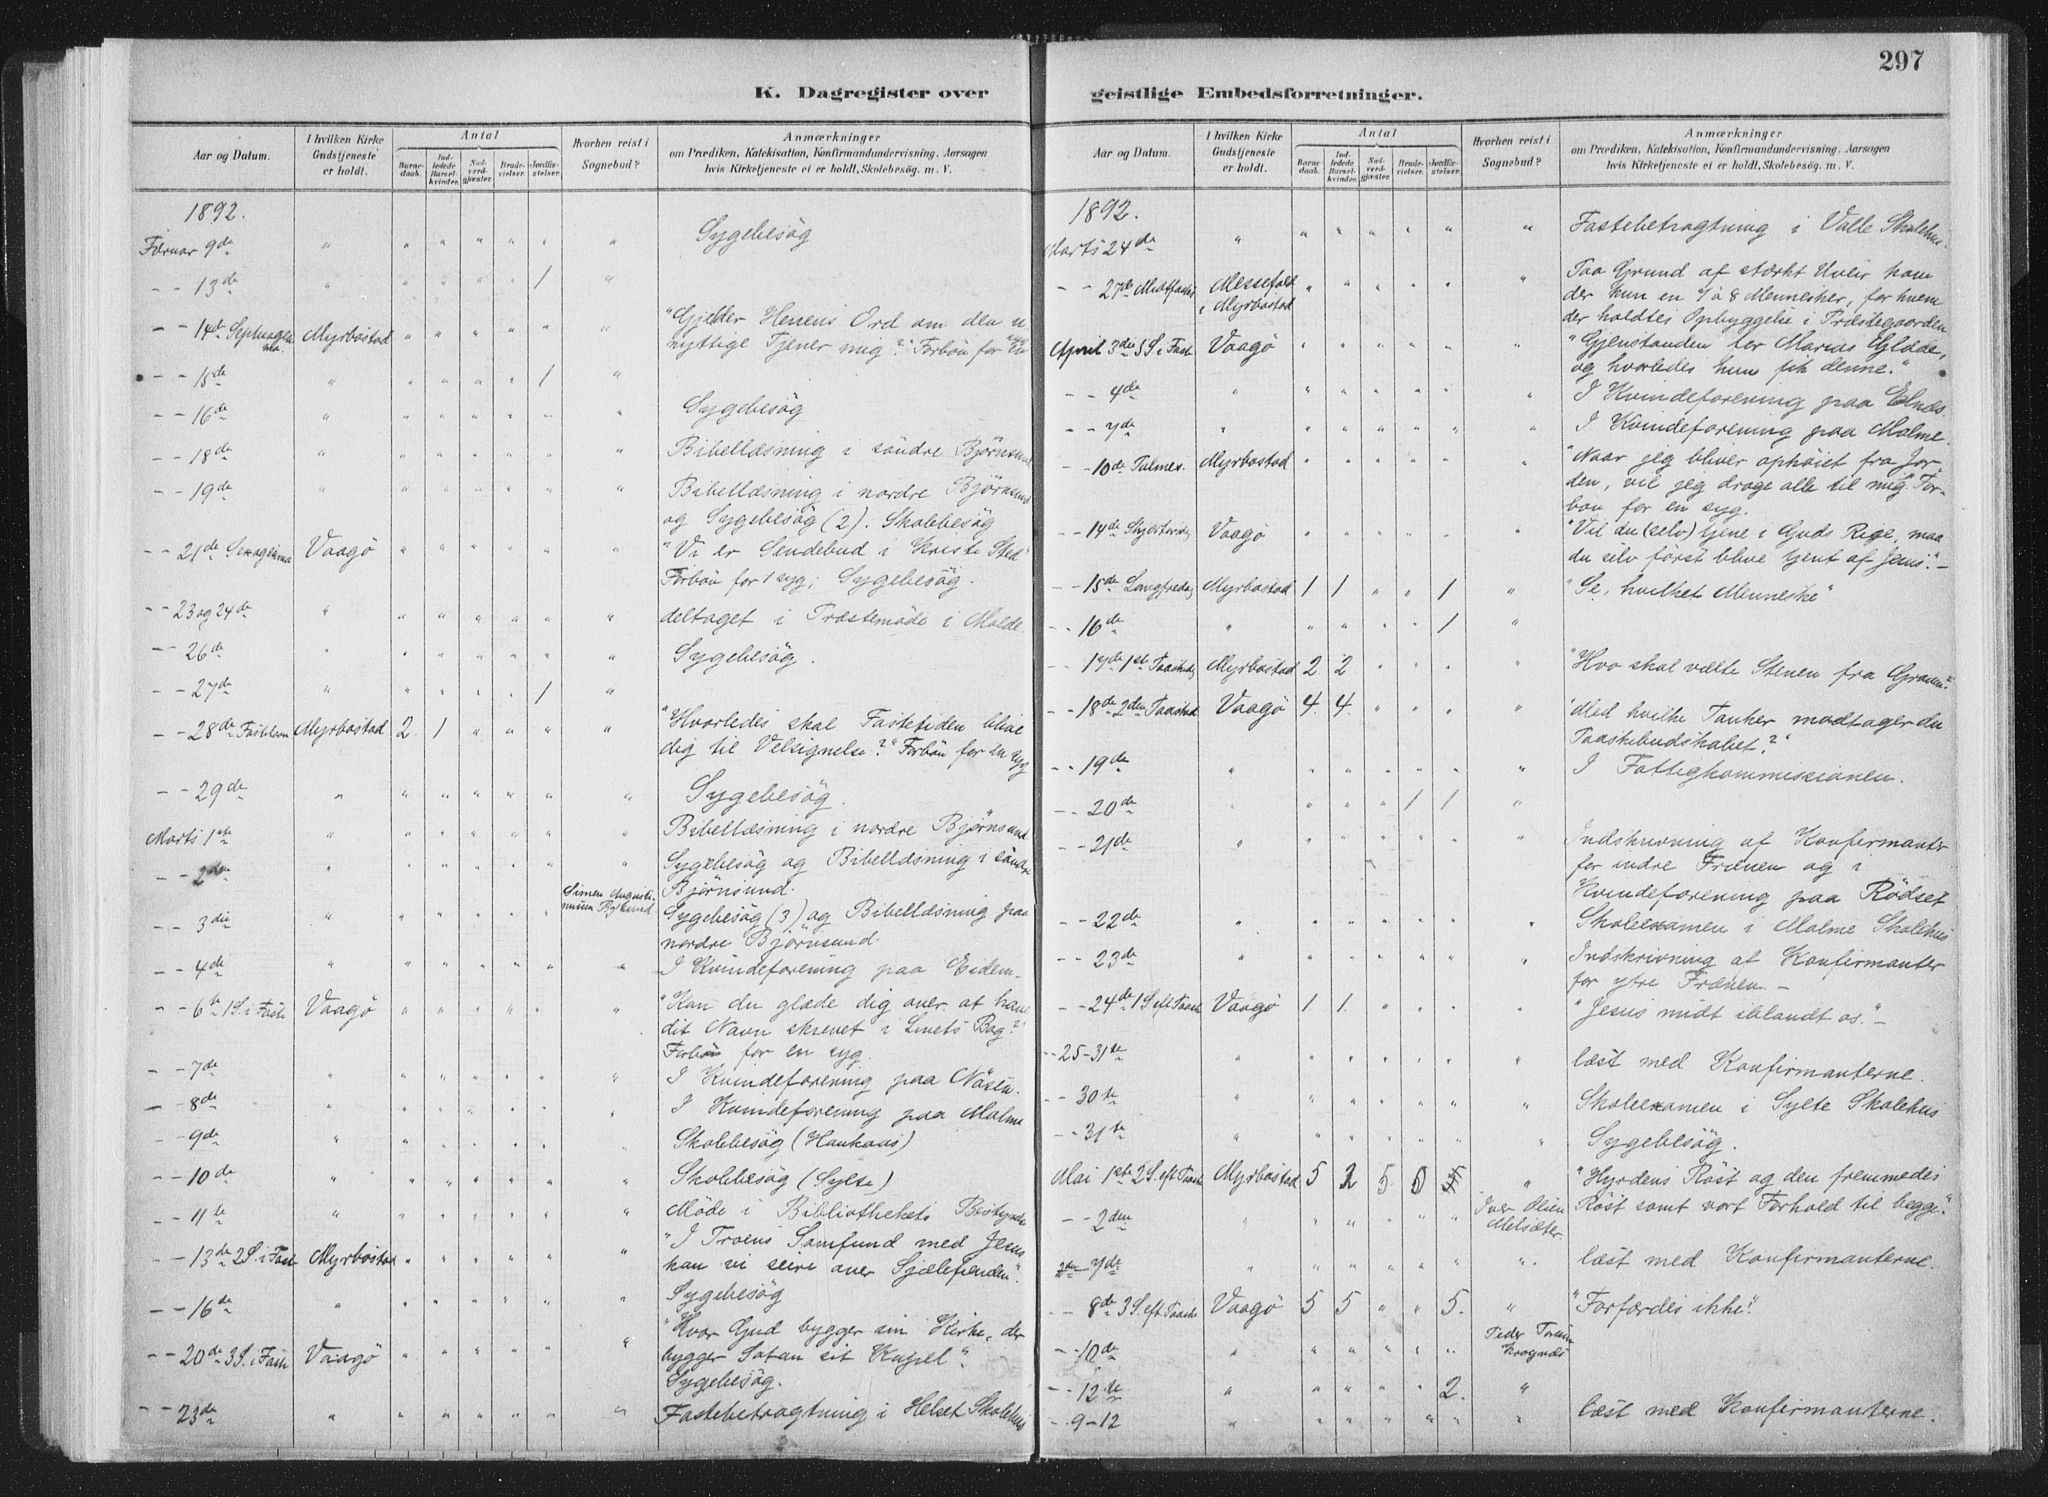 297
K. Dagregister over geistlige Embedsforretninger.
Aar og Datum.
I hvilken Kirke Gudstjeneste er holdt.
Antal
Barnedaab.
Indledede Barselkvinder.
Nadverdgjæster.
Brudevielser.
Jordfæstelser.
Hvorhen reist i Sognebud?
Anmærkninger
om Prædiken, Katekisation, Konfirmandundervisning. Aarsagen
hvis Kirketjeneste ei er holdt, Skolebesøg. m. V.
1892.
Februar 9de " " " " " " " Sygebesøg
- - 13de " " " " " 1 "
- - 14de Septuagesima Myrbostad " " " " " " "Gjelder Herrens Ord om den u-
nyttige Tjener mig?" Forbøn for en syg
- - 15de " " " " " 1 "
- - 16de " " " " " " " Sygebesøg
- - 18de " " " " " " " Bibellæsning i søndre Bjørnsund
- - 19de " " " " " " " Bibellæsning i nordre Bjørnsund
og Sygebesøg (2). Skolebesøg
- - 21de Sexagesima Vaagø " " " " " " "Vi er Sendebud i Kristi Sted"
Forbøn for 1 syg; Sygebesøg.
- - 23 og 24de " " " " " " " deltaget i Præstemøde i Molde.
- - 26de " " " " " " " Sygebesøg.
- - 27de " " " " " 1 "
- - 28de Fastelavn Myrbostad 2 1 " " " " "Hvorledes skal Fastetiden blive
dig til Velsignelse?" Forbøn for en syg
- - 29de " " " " " " " Sygebesøg.
Marts 1ste " " " " " " " Bibellæsning i nordre Bjørnsund
- - 2den " " " " " " " Sygebesøg og Bibellæsning i søndre
Bjørnsund.
- - 3die " " " " " " Simen Augusti- Sygebesøg (3) og Bibellæsning paa
nordre Bjørnsund
- - 4de " " " " " " " I Kvindeforening paa Eidem.
- - 6te 1 S. i Faste Vaagø " " " " " " "Kan du glæde dig over at have
dit Navn skrevet i Livets Bog?"
Forbøn for en syg.
- - 7de " " " " " " " I Kvindeforening paa Nåsen.
- - 8de " " " " " " " I Kvindeforening paa Malme
- - 9de " " " " " " " Skolebesøg (Haukaas)
- - 10de " " " " " " " Skolebesøg (Sylte)
- - 11te " " " " " " " Møde i Bibliothekets Bestyrelse
- - 13de 2 S. i Faste Myrbostad " " " " " " "I Troens Samfund med Jesus
kan vi seire over Sjælefienden".
- - 16de " " " " " " " Sygebesøg
- - 20de 3 S. i Faste Vaagø " " " " " " "Hvor Gud bygger sin Kirke, der
bygger Satan sit Kapel".
Sygebesøg.
- - 23de " " " " " " " Fastebetragtning i Helset Skolehus
Aar og Datum.
I hvilken Kirke Gudstjeneste er holdt.
Antal
Barnedaab.
Indledede Barselkvinder.
Nadverdgjæster.
Brudevielser.
Jordfæstelser.
Hvorhen reist i Sognebud?
Anmærkninger
om Prædiken, Katekisation, Konfirmandundervisning. Aarsagen
hvis Kirketjeneste ei er holdt, Skolebesøg. m. V.
1892.
Marts 24de " " " " " " " Fastebetragtning i Valle Skolehus.
- - 27de Midtfaste Messefald i Myrbostad " " " " " " Paa Grund af stærkt Uveir kom
der kun en 7 à 8 Mennesker, for hvem
der holdtes Opbyggelse i Præstegaarden
April 3de 5 S. i Faste Vaagø " " " " " " "Gjenstanden for Marias Glæde,
og hvorledes hun fik denne."
- - 4de " " " " " " " I Kvindeforening paa Elnæs.
- - 7de " " " " " " " I Kvindeforening paa Malme.
- - 10de Palmes. Myrbostad " " " " " " "Naar jeg bliver ophøiet fra Jor-
den, vil jeg drage alle til mig". For-
bøn for en syg.
- - 14de Skjærtorsdag Vaagø " " " " " " "Vil du (selv) tjene i Guds Rige, maa
du selv først blive tjent af Jesus". -
- - 15de Langfredag Myrbostad 1 1 " " 1 " "Se, hvilket Menneske"
- - 16de " " " " " 1 "
- - 17de 1st Paaskedag Myrbostad 2 2 " " " " "Hvo skal vælte Stenen fra Graven?"
- - 18de 2den Paaskd Vaagø 4. 4. " " " " "Med hvilke Tanker modtager du
Paaskebudskabet?"
- - 19de " " " " " " " I Fattigkommissionen.
- - 20de " " " " 1 1 "
- - 21de " " " " " " " Indskrivning af Konfirmanter
for indre Frænen og i
Kvindeforening paa Rødset
- - 22de " " " " " " " Skoleexamen i Malme Skolehus
- - 23de " " " " " " " Indskrivning af Konfirmanter
for ytre Frænen. -
- - 24de 1 S. eft. Paaske Vaagø 1 1. " " " " "Jesus midt iblandt os." -
- - 25-31te " " " " " " " læst med Konfirmanterne.
- - 30te " " " " " " " Skoleexamen i Sylte Skolehus
- - 31te " " " " " " " Sygebesøg.
Mai 1ste 2 S. eft. Paaske Myrbostad 5 2 5 0 " "Hyrdens Røst og den fremmedes
Røst samt vort Forhold til begge."
- - 2den " " " " " " Iver Olsen
Melsæter.
7de " " " " " " " læst med Konfirmanterne.
- - 8de 3 S. eft. Paaske Vaagø 5 5 " " 5. " "Forfærdes ikke".
- - 10de " " " " " " Peder
- - 12te " " " " " 2. "
- - 9-12 " " " " " " " læst med Konfirmanterne.